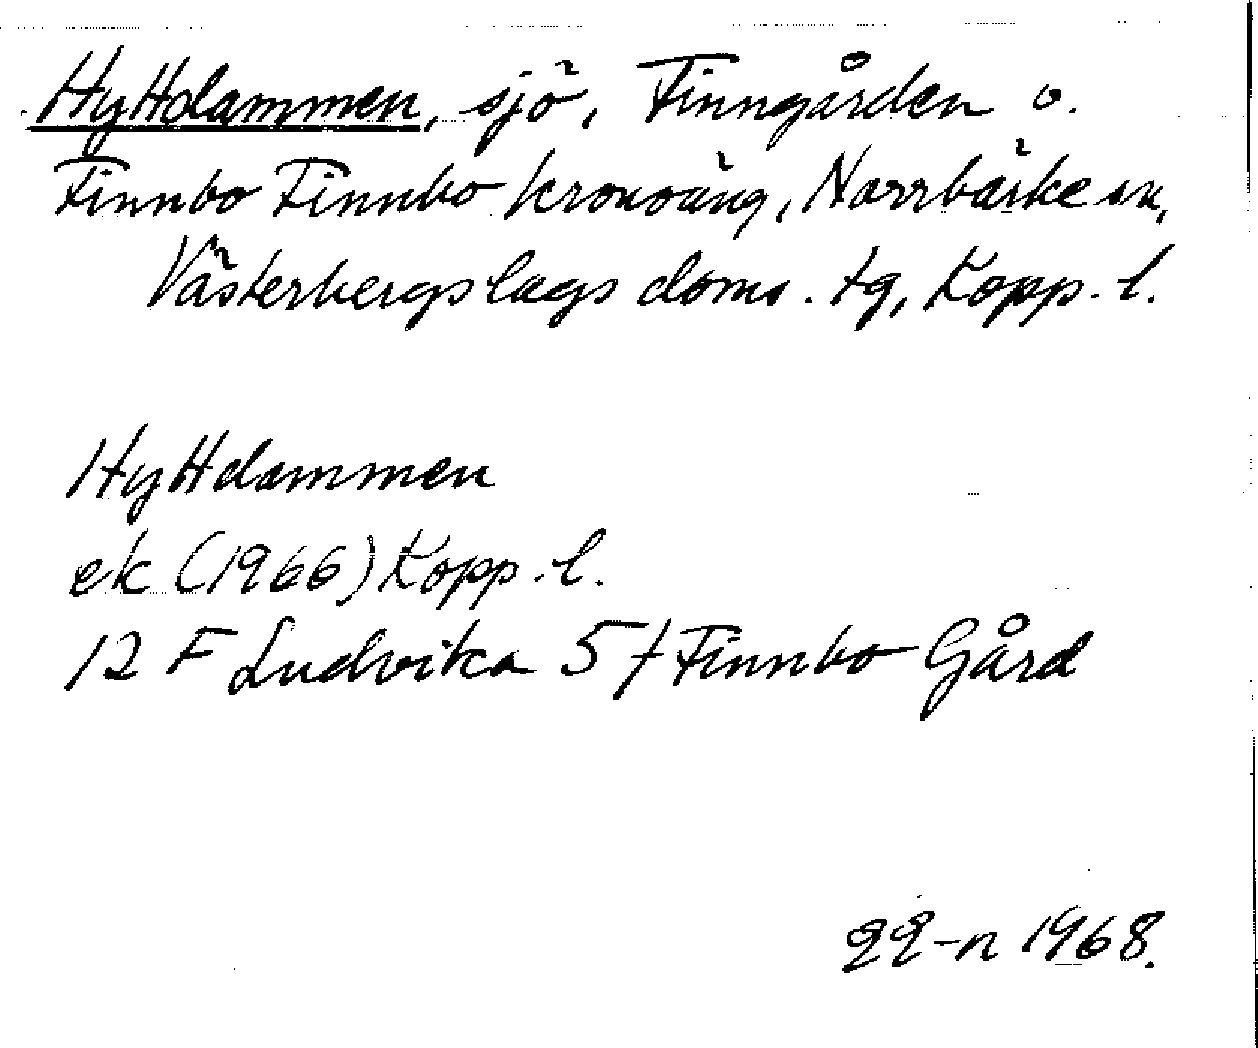 Hyttdammen, sjö, Finngården o.
Finnbo Finnbo kronoäng, Norrbärke sn,
Västerbergslags doms. tg, Kopp. l.
Hyttdammen
ek (1966) Kopp. l.
12 F Ludvika 5 f Finnbo Gård
1968.